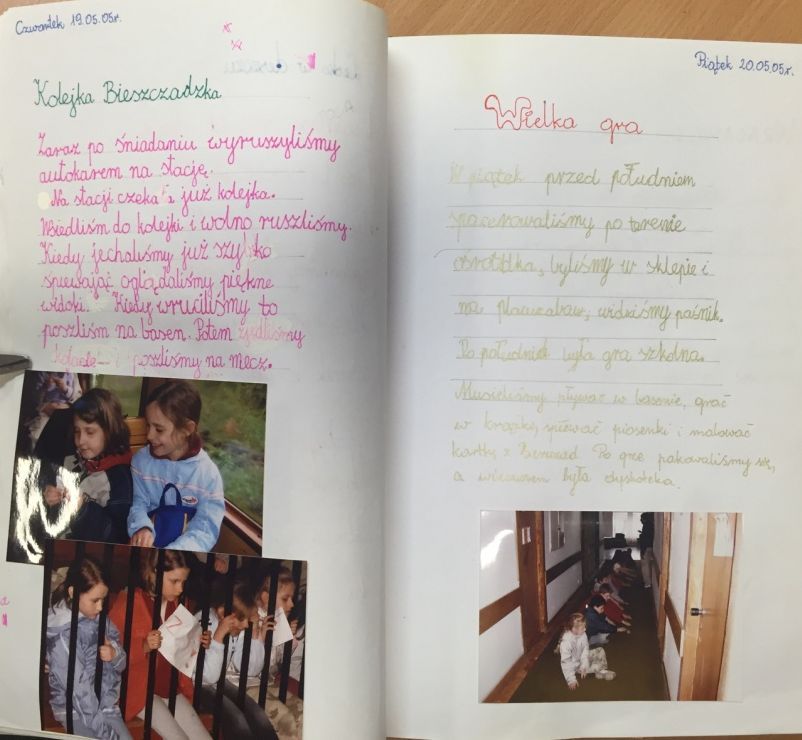 Czwartek 19.05.05r.
Kolejka Bieszczadzka
Zaraz po śniadaniu wyruszyliśmy
autokarem na stację.
Na stacji czekała już kolejka.
Wsiedliśm do kolejki i wolno ruszliśmy.
Kiedy jechaliśmy już szybko
śpiewając oglądaliśmy piękne
widoki. Kiedy wruciliśmy to
poszliśm na basen. Potem zjedliśmy
i poszliśmy na mecz.
Piątek 20.05.05r.
Wielka gra
W piątek przed południem
spacerowaliśmy po terenie
ośrodka, byliśmy w sklepie i
na placuzabaw, widziśmy paśnik.
Po południu była gra szkolna.
Musieliśmy pływać w basenie, grać
w krążki, śpiewać piosenki i malować
kartkę z Bieszczad Po grze pakowaliśmy się,
a wieczorem była dyskoteka.